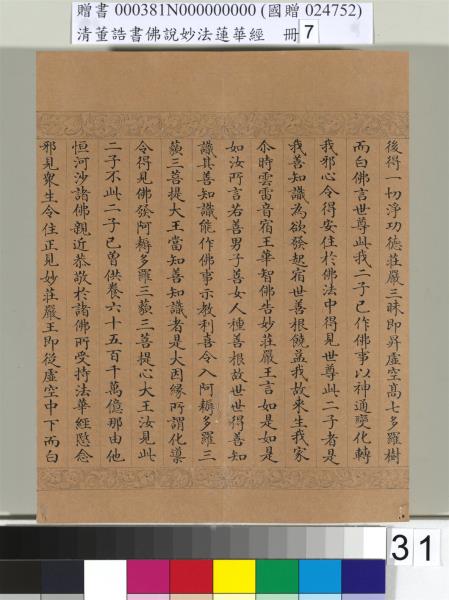 贈書 000381N000000000 (國贈 024752)
清董誥書佛說妙法蓮華經 冊 7
後得一切淨功德莊嚴三昧即昇虛空高七多羅樹
而白佛言世尊此我二子已作佛事以神通變化轉
我邪心令得安住於佛法中得見世尊此二子者是
我善知識為欲發起宿世善根饒益我故來生我家
尒時雲雷音宿王華智佛告妙莊嚴王言如是如是
如汝所言若善男子善女人種善根故世世得善知
識其善知識能作佛事示教利喜令入阿耨多羅三
藐三菩提大王當知善知識者是大因緣所謂化導
令得見佛發阿耨多羅三藐三菩提心大王汝見此
二子不此二子已曾供養六十五百千萬億那由他
恒河沙諸佛親近恭敬於諸佛所受持法華經愍念
邪見眾生令住正見妙莊嚴王即從虛空中下而白
31